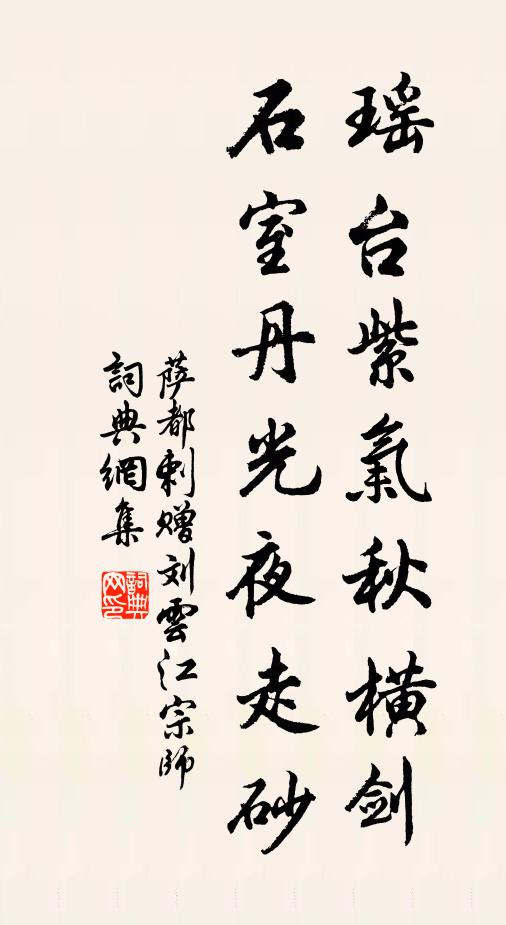 瑶台紫氣秋橫剑
石室丹光夜走砂
萨都剌赠刘雲江宗師
詞典網集
詞典网印